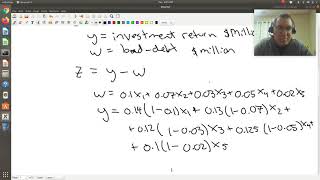 y = investment return $Millio
w = bad-debt $million
z = y - w
w = 0.1x₁ + 0.07x₂ + 0.03x₃ + 0.05x₄ + 0.02x₅
y = 0.14(1-0.1)x₁ + 0.13(1-0.07)x₂ +
+ 0.12(1-0.03)x₃ + 0.125(1-0.05)x₄ +
+ 0.1(1-0.02)x₅